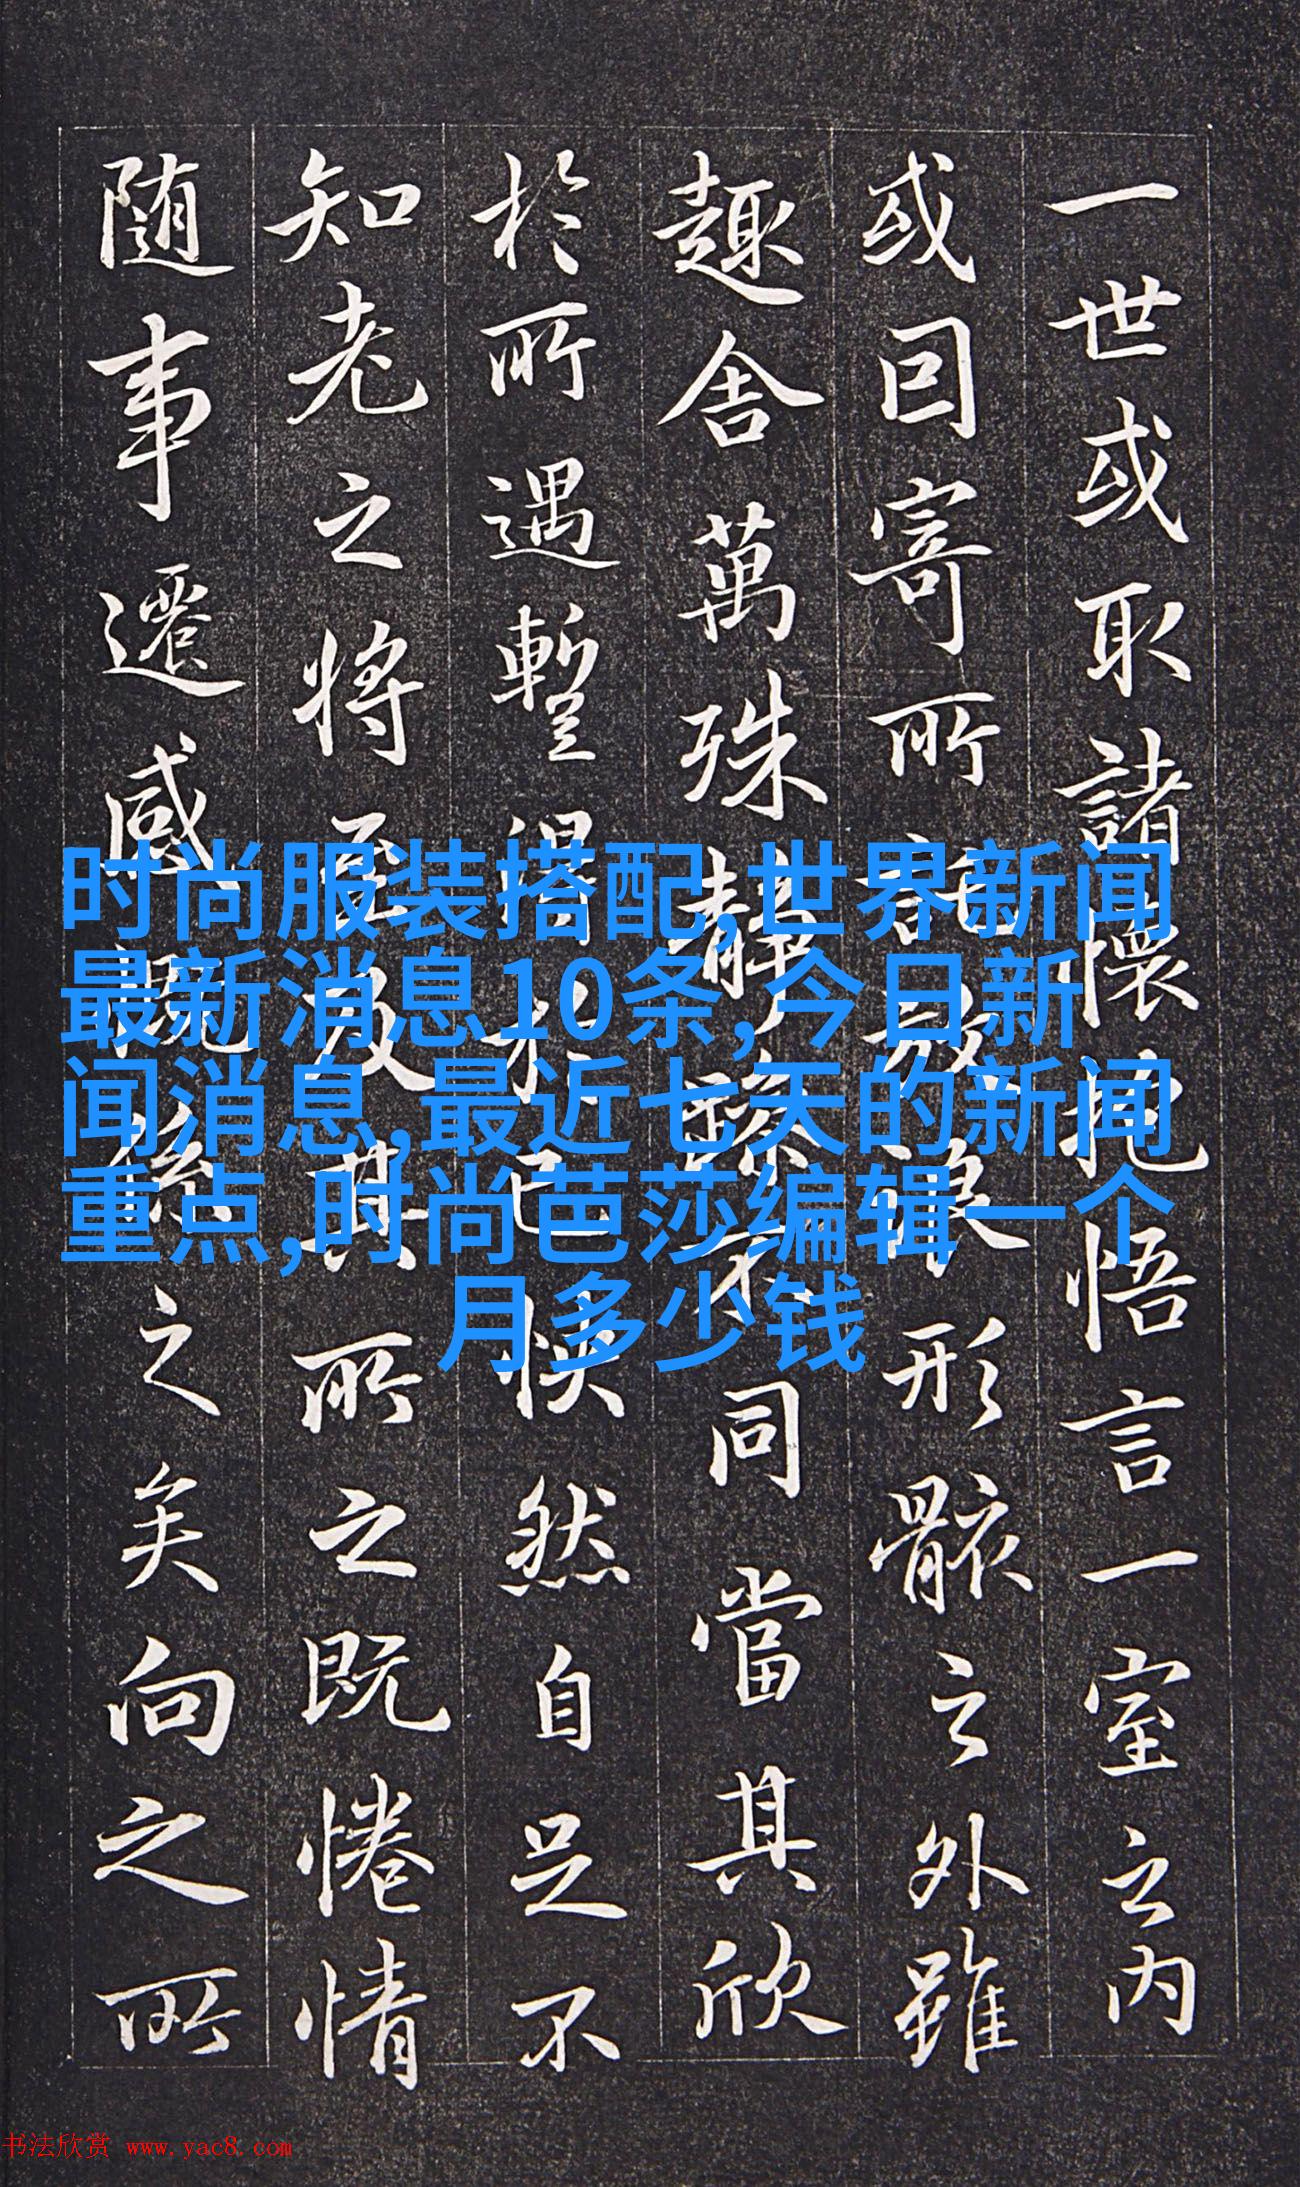 一世或取諸懷抱悟言一室之内
或囙寄所託放浪形骸之外雖
趣舍萬殊靜躁不同當其欣
於所遇暫得於己快然自足不
知老之將至及其所之既惓情
随事遷感慨係之矣向之所
时尚服装搭配,世界新闻
最新消息10条,今日新
闻消息,最近七天的新闻
重点,时尚芭莎编辑一个
月多少钱
书法欣赏 www.yac8.com